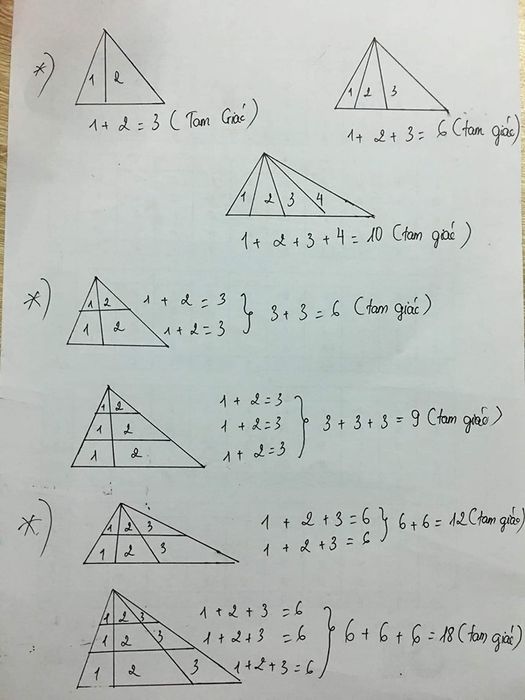 *)
1 2
1 + 2 = 3 ( Tam Giác )
1 2 3
1 + 2 + 3 = 6 (tam giác)
1 2 3 4
1 + 2 + 3 + 4 = 10 (tam giác)
*)
1 2
1 2
1 + 2 = 3
1 + 2 = 3
} 3 + 3 = 6 (tam giác)
1 2
1 2
1 2
1 + 2 = 3
1 + 2 = 3
1 + 2 = 3
} 3 + 3 + 3 = 9 (tam giác)
*)
1 2 3
1 2 3
1 + 2 + 3 = 6
1 + 2 + 3 = 6
} 6 + 6 = 12 (tam giác)
1 2 3
1 2 3
1 2 3
1 + 2 + 3 = 6
1 + 2 + 3 = 6
1 + 2 + 3 = 6
} 6 + 6 + 6 = 18 (tam giác)